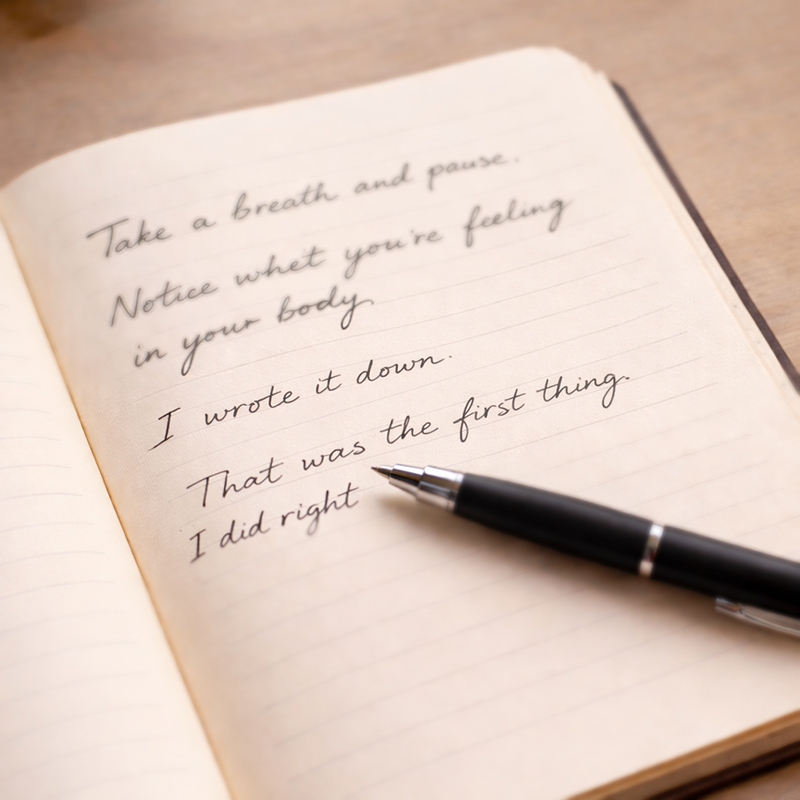 Take a breath and pause.
Notice whet you're feeling
in your body
I wrote it down.
That was the first thing.
I did right